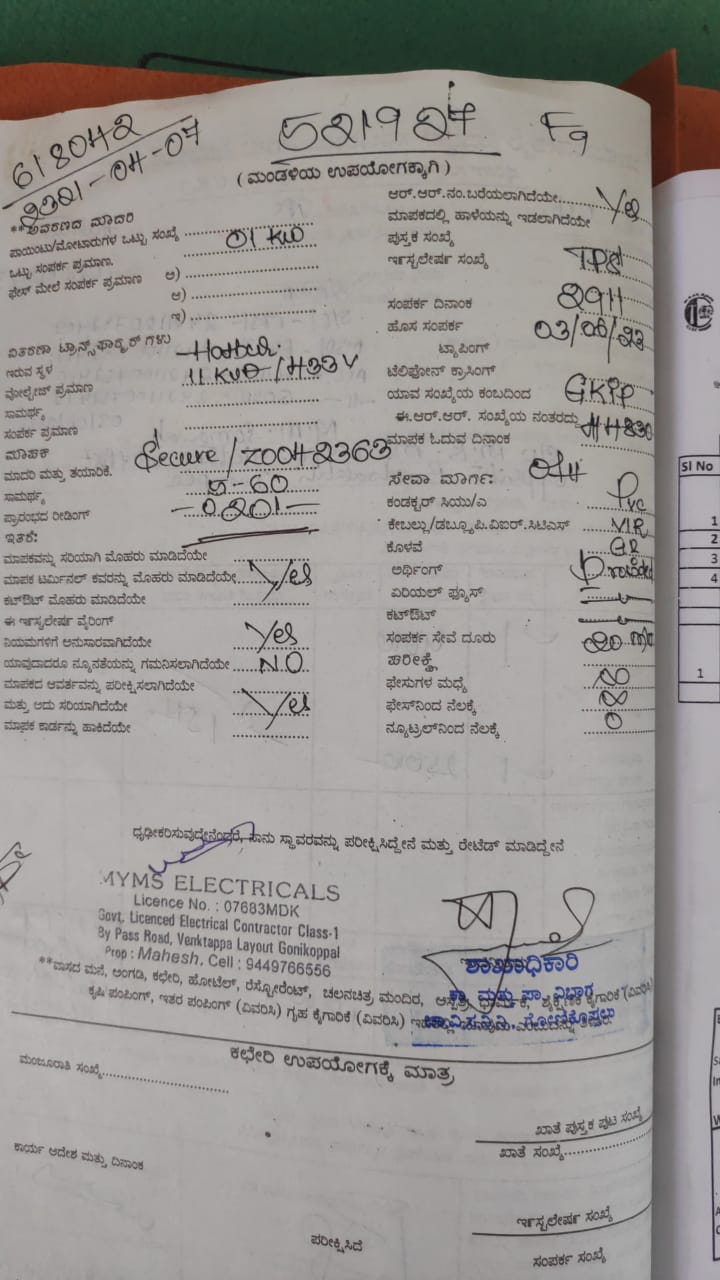 618042
2321-04-07
521927 F9
(ಮಂಡಳಿಯ ಉಪಯೋಗಕ್ಕಾಗಿ)
**ಆವರಣದ ಮಾದರಿ
ಪಾಯಿಂಟು/ಮೋಟಾರುಗಳ ಒಟ್ಟು ಸಂಖ್ಯೆ
ಒಟ್ಟು ಸಂಪರ್ಕ ಪ್ರಮಾಣ. 01 KW
ಫೇಸ್ ಮೇಲೆ ಸಂಪರ್ಕ ಪ್ರಮಾಣ ಅ)
ಆ)
ಇ)
ವಿತರಣಾ ಟ್ರಾನ್ಸ್‌ಫಾರ್‍ಮರ್ ಗಳು
ಇರುವ ಸ್ಥಳ
ವೋಲ್ಟೇಜ್ ಪ್ರಮಾಣ 433 V
ಸಾಮರ್ಥ್ಯ
ಸಂಪರ್ಕ ಪ್ರಮಾಣ
ಮಾಪಕ
ಮಾದರಿ ಮತ್ತು ತಯಾರಿಕೆ. Secure / Z0042363
ಸಾಮರ್ಥ್ಯ 5-60
ಪ್ರಾರಂಭದ ರೀಡಿಂಗ್ -0201-
ಇತರೆ:
ಮಾಪಕವನ್ನು ಸರಿಯಾಗಿ ಮೊಹರು ಮಾಡಿದೆಯೇ
ಮಾಪಕ ಟರ್ಮಿನಲ್ ಕವರನ್ನು ಮೊಹರು ಮಾಡಿದೆಯೇ Yes
ಕಟ್‌ಔಟ್ ಮೊಹರು ಮಾಡಿದೆಯೇ
ಈ ಇನ್ಸ್ಟಲೇಷನ್ ವೈರಿಂಗ್
ನಿಯಮಗಳಿಗೆ ಅನುಸಾರವಾಗಿದೆಯೇ Yes
ಯಾವುದಾದರೂ ನ್ಯೂನತೆಯನ್ನು ಗಮನಿಸಲಾಗಿದೆಯೇ NO
ಮಾಪಕದ ಆವರ್ತವನ್ನು ಪರೀಕ್ಷಿಸಲಾಗಿದೆಯೇ
ಮತ್ತು ಅದು ಸರಿಯಾಗಿದೆಯೇ Yes
ಮಾಪಕ ಕಾರ್ಡನ್ನು ಹಾಕಿದೆಯೇ
ಆರ್.ಆರ್.ನಂ.ಬರೆಯಲಾಗಿದೆಯೇ Yes
ಮಾಪಕದಲ್ಲಿ ಹಾಳೆಯನ್ನು ಇಡಲಾಗಿದೆಯೇ
ಪುಸ್ತಕ ಸಂಖ್ಯೆ
ಇನ್ಸ್ಟಲೇಷನ್ ಸಂಖ್ಯೆ
ಸಂಪರ್ಕ ದಿನಾಂಕ 2911
ಹೊಸ ಸಂಪರ್ಕ
ಟ್ಯಾಪಿಂಗ್
ಟೆಲಿಫೋನ್ ಕ್ರಾಸಿಂಗ್
ಯಾವ ಸಂಖ್ಯೆಯ ಕಂಬದಿಂದ
ಈ.ಆರ್.ಆರ್. ಸಂಖ್ಯೆಯ ನಂತರದ್ದು
ಮಾಪಕ ಓದುವ ದಿನಾಂಕ
ಸೇವಾ ಮಾರ್ಗ:
ಕಂಡಕ್ಟರ್ ಸಿಯು/ಎ PVC
ಕೇಬಲ್ಲು/ಡಬ್ಲ್ಯೂ.ಪಿ.ವಿ.ಐರ್.ಸಿಟಿಎಸ್ VIR
ಕೊಳವೆ
ಅರ್ಥಿಂಗ್ Provided
ಏರಿಯಲ್ ಫ್ಯೂಸ್
ಕಟ್‌ಔಟ್
ಸಂಪರ್ಕ ಸೇವೆ ದೂರು
ಪರೀಕ್ಷೆ
ಫೇಸುಗಳ ಮಧ್ಯೆ
ಫೇಸ್‌ನಿಂದ ನೆಲಕ್ಕೆ
ನ್ಯೂಟ್ರಲ್‌ನಿಂದ ನೆಲಕ್ಕೆ
ಧೃಢೀಕರಿಸುವುದೇನೆಂದರೆ, ನಾನು ಸ್ಥಾವರವನ್ನು ಪರೀಕ್ಷಿಸಿದ್ದೇನೆ ಮತ್ತು ರೇಟೆಡ್ ಮಾಡಿದ್ದೇನೆ
MYMS ELECTRICALS
Licence No. : 07683MDK
Govt. Licenced Electrical Contractor Class-1
By Pass Road, Venktappa Layout Gonikoppal
Prop : Mahesh. Cell : 9449766556
ಶಾಖಾಧಿಕಾರಿ
**ವಾಸದ ಮನೆ, ಅಂಗಡಿ, ಕಛೇರಿ, ಹೋಟೆಲ್, ರೆಸ್ಟೋರೆಂಟ್, ಚಲನಚಿತ್ರ ಮಂದಿರ, ಕೈಗಾರಿಕೆ (ವಿವರಿಸಿ)
ಕೃಷಿ ಪಂಪಿಂಗ್, ಇತರ ಪಂಪಿಂಗ್ (ವಿವರಿಸಿ) ಗೃಹ ಕೈಗಾರಿಕೆ (ವಿವರಿಸಿ)
ಕಛೇರಿ ಉಪಯೋಗಕ್ಕೆ ಮಾತ್ರ
ಮಂಜೂರಾತಿ ಸಂಖ್ಯೆ
ಖಾತೆ ಪುಸ್ತಕ ಪುಟ ಸಂಖ್ಯೆ
ಖಾತೆ ಸಂಖ್ಯೆ
ಕಾರ್ಯ ಆದೇಶ ಮತ್ತು ದಿನಾಂಕ
ಇನ್ಸ್ಟಲೇಷನ್ ಸಂಖ್ಯೆ
ಪರೀಕ್ಷಿಸಿದೆ
ಸಂಪರ್ಕ ಸಂಖ್ಯೆ
Sl No
1
2
3
4
1